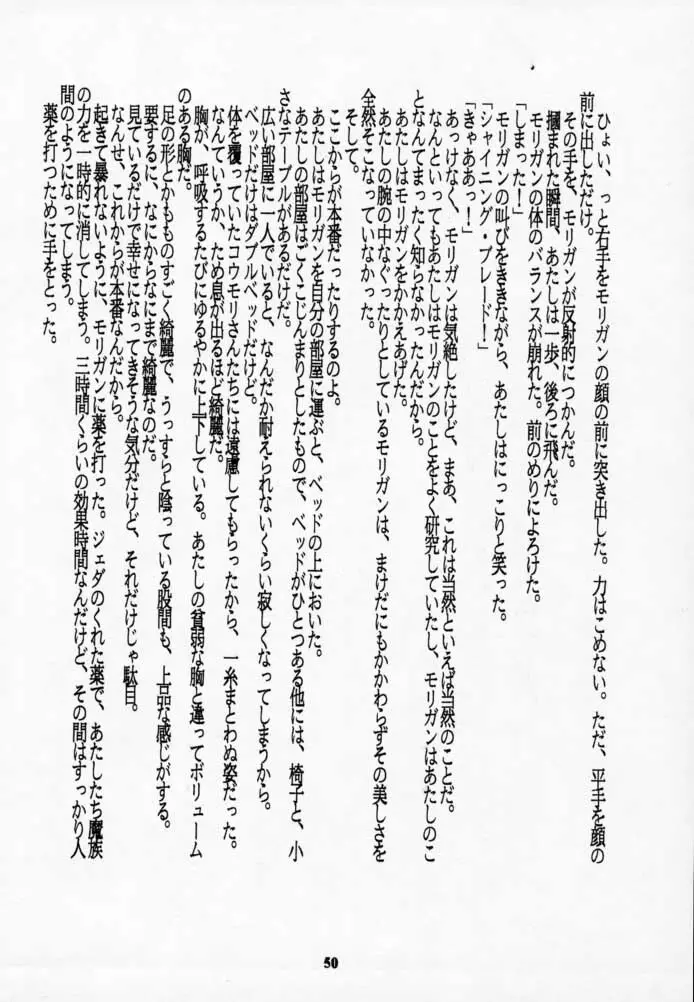 ひょい、っと右手をモリガンの顔の前に突き出した。力はこめない。ただ、平手を顔の
前に出しただけ。
その手を、モリガンが反射的につかんだ。
掴まれた瞬間、あたしは一歩、後ろに飛んだ。
モリガンの体のバランスが崩れた。前のめりによろけた。
「しまった！」
「シャイニング・ブレード！」
「きゃああっ！」
モリガンの叫びをききながら、あたしはにっこりと笑った。
あっけなく、モリガンは気絶したけど、まあ、これは当然といえば当然のことだ。
なんといってもあたしはモリガンのことをよく研究していたし、モリガンはあたしのこ
となんてまったく知らなかったんだから。
あたしはモリガンをかかえあげた。
あたしの腕の中なぐったりとしているモリガンは、まけだにもかかわらずその美しさを
全然そこなっていなかった。
そして。
ここからが本番だったりするのよ。
あたしはモリガンを自分の部屋に運ぶと、ベッドの上においた。
あたしの部屋はごくこじんまりとしたもので、ベッドがひとつある他には、椅子と、小
さなテーブルがあるだけだ。
広い部屋に一人でいると、なんだか耐えられないくらい寂しくなってしまうから。
ベッドだけはダブルベッドだけど。
体を覆っていたコウモリさんたちには遠慮してもらったから、一糸まとわぬ姿だった。
なんていうか、ため息が出るほど綺麗だ。
胸が、呼吸するたびにゆるやかに上下している。あたしの貧弱な胸と違ってボリューム
のある胸だ。
足の形とかもものすごく綺麗で、うっすらと陰っている股間も、上品な感じがする。
要するに、なにからなにまで綺麗なのだ。
見ているだけで幸せになってきそうな気分だけど、それだけじゃ駄目。
なんせ、これからが本番なんだから。
起きて暴れないように、モリガンに薬を打った。ジェダのくれた薬で、あたしたち魔族
の力を一時的に消してしまう。三時間くらいの効果時間なんだけど、その間はすっかり人
間のようになってしまう。
薬を打つために手をとった。
50